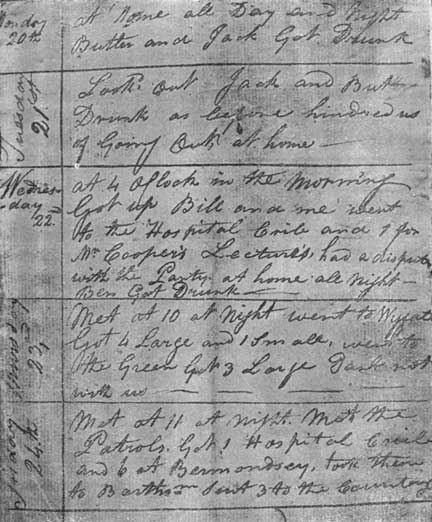 Monday
20th
at Home all Day and Night
Butler and Jack Got Drunk
Tuesday
21st
Look Out Jack and Butler
Drunk as before hindred us
of Going Out at home —
Wednes-
-day
22nd
at 4 OClock in the Morning
Got up Bill and me went
to the Hospital Crib and 1 for
Mr Cooper's Lectures, had a dispute
with the Party at home all Night —
Ben Got Drunk —
Thursday
23rd
Met at 10 at Night went to
Got 4 Large and 1 Small, went to
the Green Got 3 Large not
with us — — — —
Friday
24th
Met at 11 at Night. Met the
Patrols. Got 1 Hospital Crib
and 6 at Bermondsey, took them
to Barthom Sent 3 to the Country